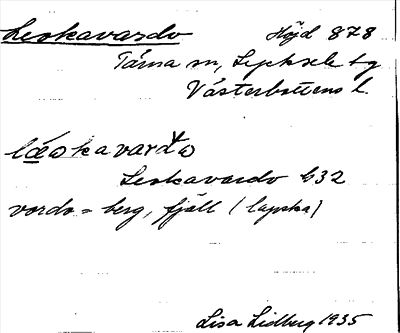 Leskavardo Höjd 878
Tärna sn, Lycksele tg
Västerbottens l.
læskavardo
Leskavardo 632
vardo = berg, fjäll (lapska)
Lisa Lidberg 1935